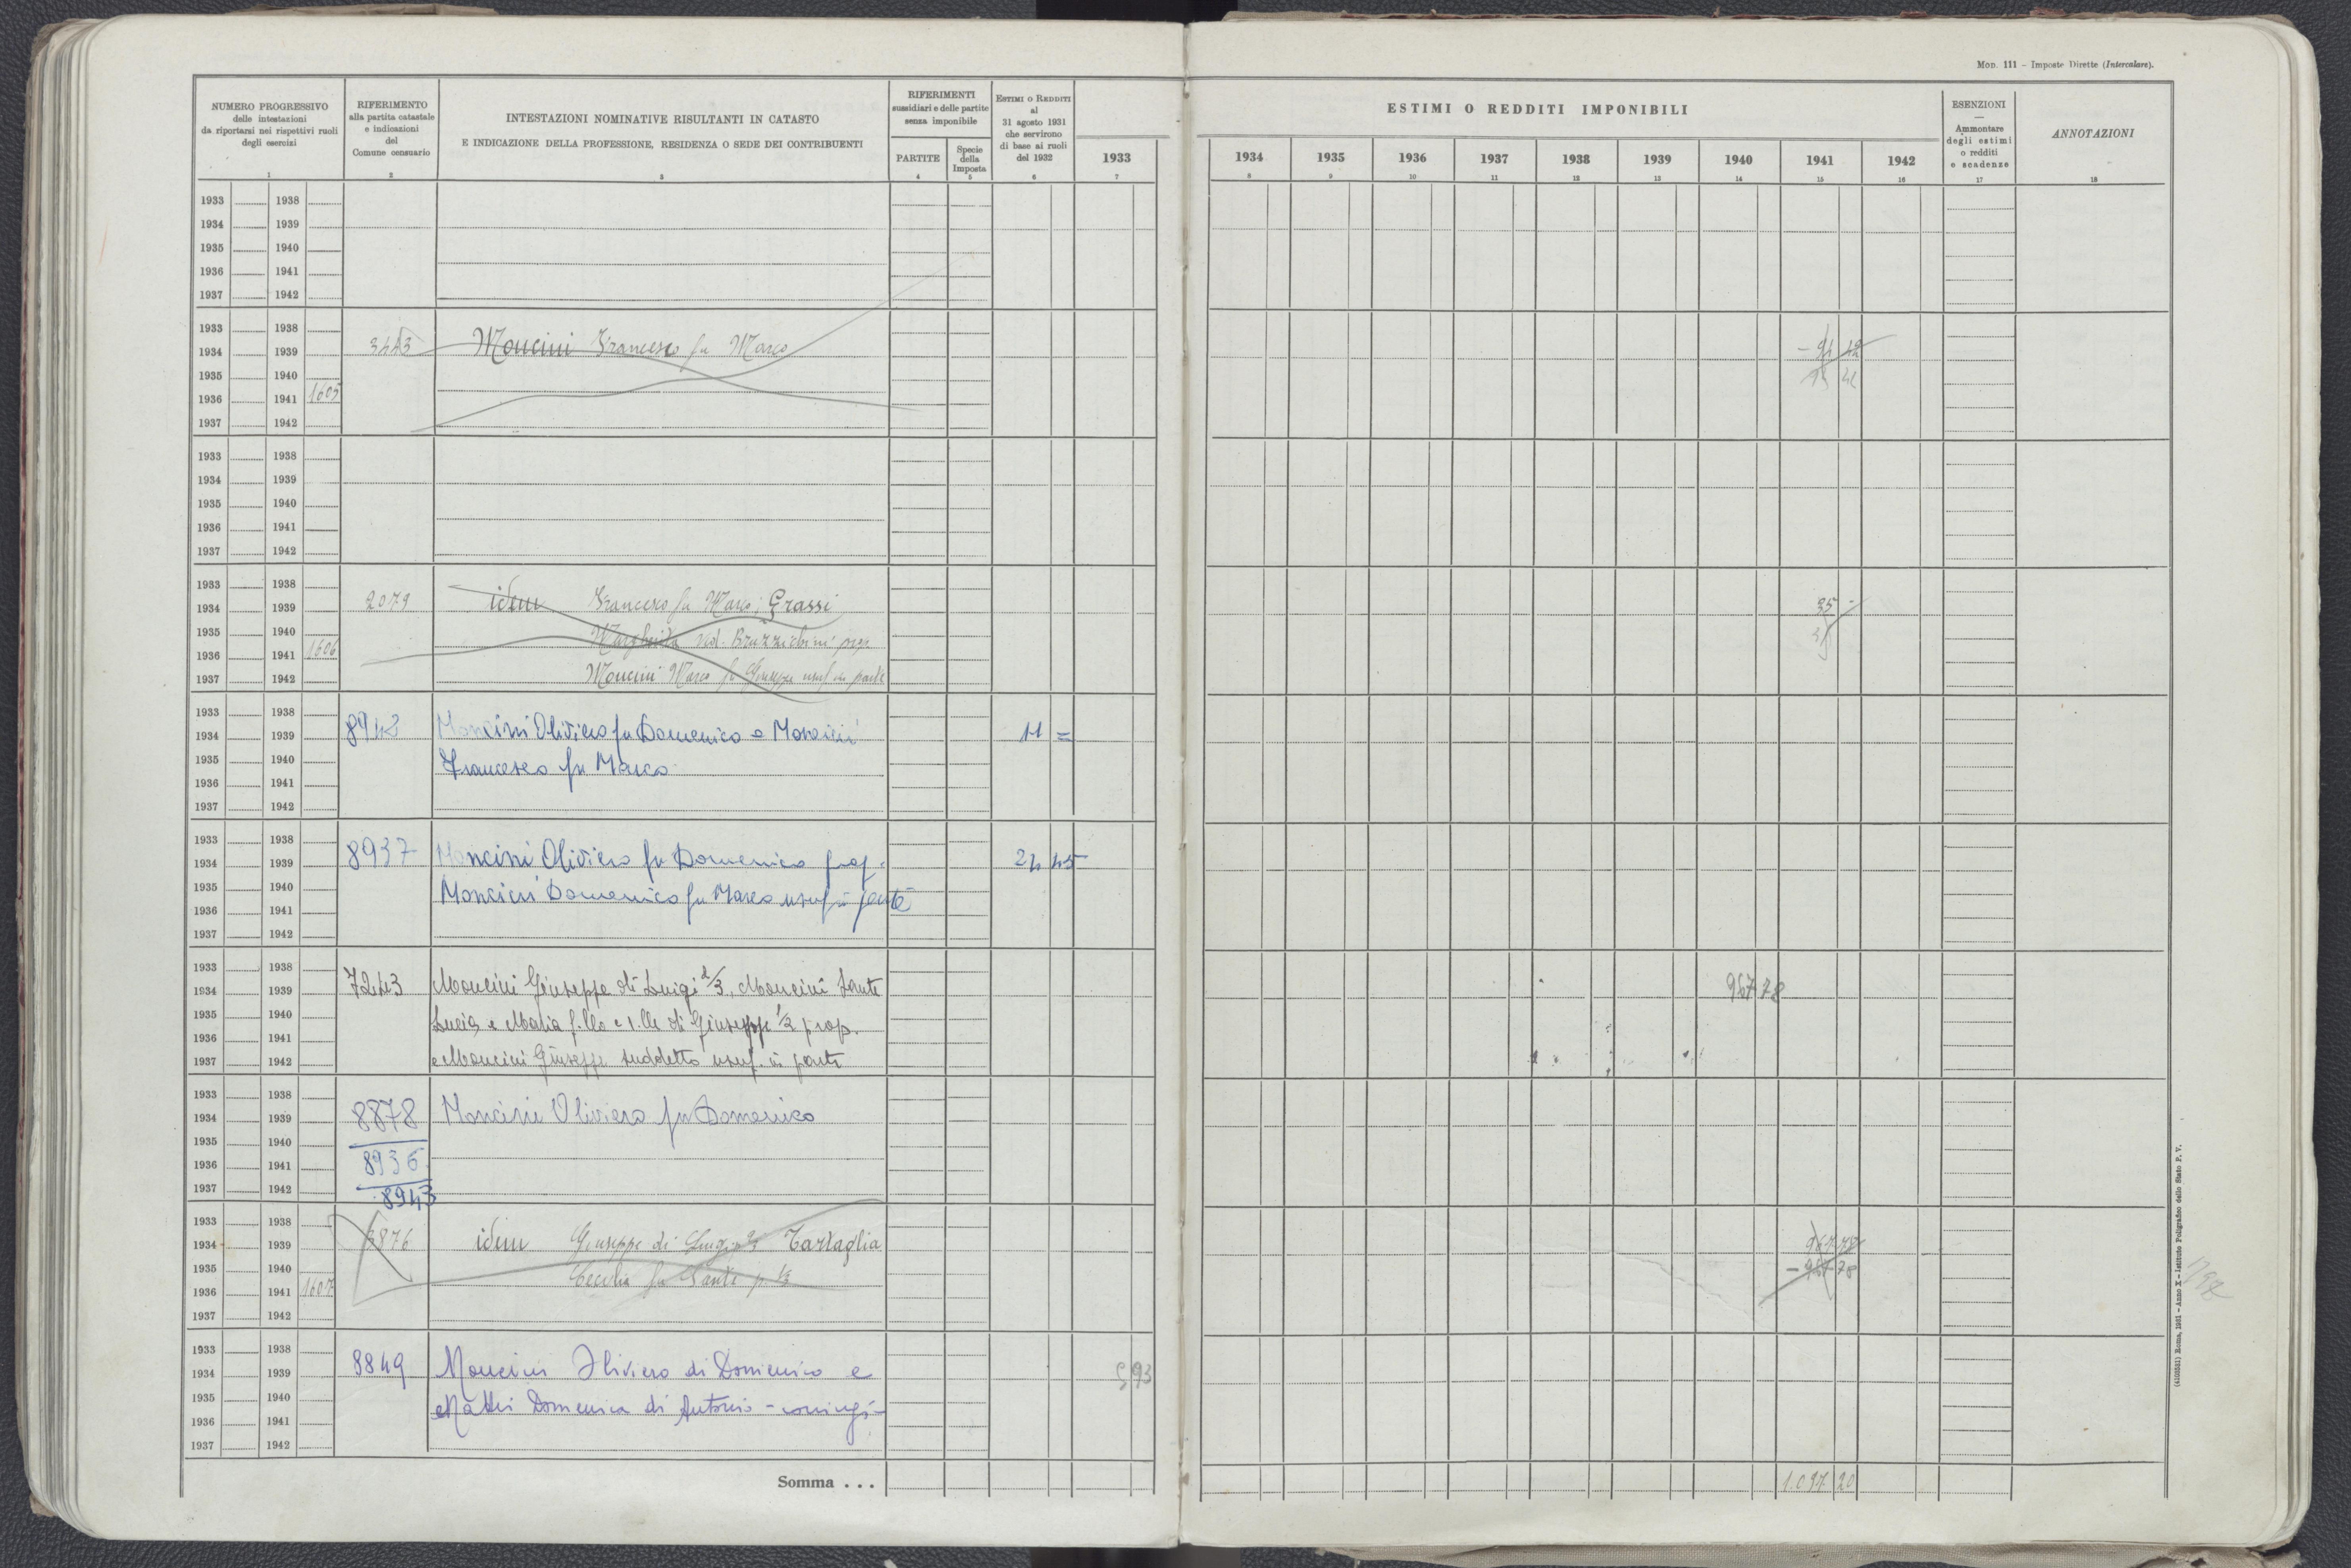 Mod. 111 – Imposte Dirette (Intercalare).
NUMERO PROGRESSIVO
delle intestazioni
da riportarsi nei rispettivi ruoli
degli esercizi
1
RIFERIMENTO
alla partita catastale
e indicazioni
del
Comune censuario
2
INTESTAZIONI NOMINATIVE RISULTANTI IN CATASTO
E INDICAZIONE DELLA PROFESSIONE, RESIDENZA O SEDE DEI CONTRIBUENTI
3
RIFERIMENTI
sussidiari e delle partite
senza imponibile
PARTITE
4
Specie
della
Imposta
5
Estimi o Redditi
al
31 agosto 1931
che servirono
di base ai ruoli
del 1932
6
ESTIMI O REDDITI IMPONIBILI
1933 1934 1935 1936 1937 1938 1939 1940 1941 1942
7 8 9 10 11 12 13 14 15 16
ESENZIONI
—
Ammontare
degli estimi
o redditi
e scadenze
17
ANNOTAZIONI
18
1933 1938
1934 1939
1935 1940
1936 1941
1937 1942
1933 1938
1934 1939 3443 Moncini Francesco fu Marco
1935 1940
1936 1941 1605
1937 1942
1933 1938
1934 1939
1935 1940
1936 1941
1937 1942
1933 1938
1934 1939 2079 idem Francesco fu Marco; Grassi 25 -
1935 1940 Margherita ved. Bruzzichini prop.
1936 1941 1606
1937 1942 Moncini Marco fu Giuseppe usuf in parte
1933 1938
1934 1939 8942 Moncini Oliviero fu Domenico e Moncini 11 =
1935 1940 Francesco fu Marco
1936 1941
1937 1942
1933 1938
1934 1939 8937 Moncini Oliviero fu Domenico prop. 24 45
1935 1940 Moncini Domenico fu Marco usuf in parte
1936 1941
1937 1942
1933 1938
1934 1939 7243 Moncini Giuseppe di Luigi 2/3, Moncini Sante 967 78
1935 1940 Lucia e Maria f.llo e s.lle di Giuseppe 1/3 prop.
1936 1941
1937 1942 e Moncini Giuseppe suddetto usuf. in parte
1933 1938
1934 1939 8878 Moncini Oliviero fu Domenico
1935 1940
1936 1941 8936
1937 1942 8943
1933 1938
1934 1939 3876 idem Giuseppe di Luigi 2/3 Tartaglia 967 78
1935 1940 Cecilia fu Sante p. 1/3 - 967 78
1936 1941 1607
1937 1942
1933 1938
1934 1939 8849 Moncini Oliviero di Domenico e 5 93
1935 1940 Mattei Domenica di Antonio - coniugi -
1936 1941
1937 1942
Somma . . . 1.097 20
(4103551) Roma, 1931 - Anno X - Istituto Poligrafico dello Stato P. V.